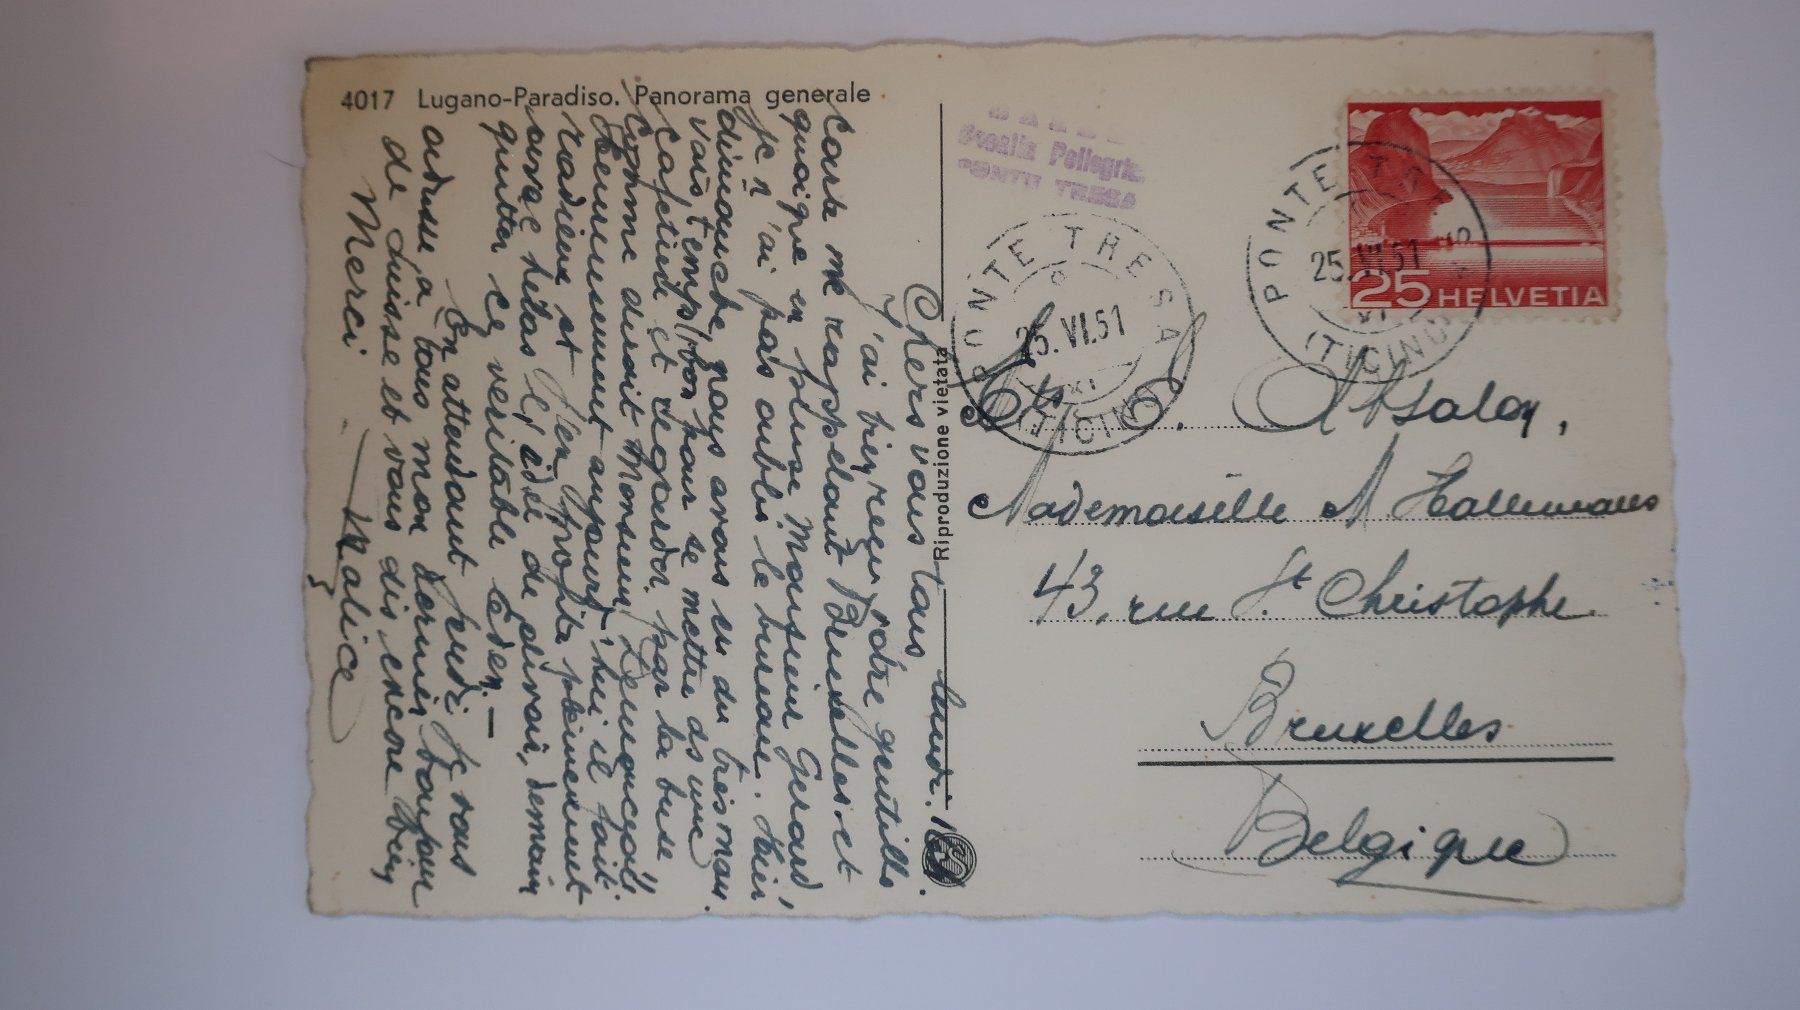 4017 Lugano-Paradiso. Panorama generale
lundi.
Chers vous tous
J'ai bien reçu votre gentille
carte me rappelant Bruxelles et
quoique en pleine Monsieur Gerard,
je n'ai pas oublié le bureau. Hier
dimanche nous avons eu du très mau.
vais temps, bon pour se mettre as une
Cafetied et regarder par la buse
comme disait Monsieur
Heureusement aujourd'hui il fait
radieux et j'en profite pleinement
avec hélas l'idée de devoir, demain
quitter ce veritable Eden. —
En attendant jeudi je vous
adresse à tous mon dernier bonjour
de Suisse et vous dis encore bien
Merci. — Malice
Riproduzione vietata
Rosalia Pellegrini
PONTE TRESA
PONTE TRESA
25.VI.51
XI
(TICINO)
PONTE TRESA
25.VI.51
XI
(TICINO)
25 HELVETIA
Ets C. Absalon,
Mademoiselle M Hallemans
43, rue St Christophe
Bruxelles
Belgique